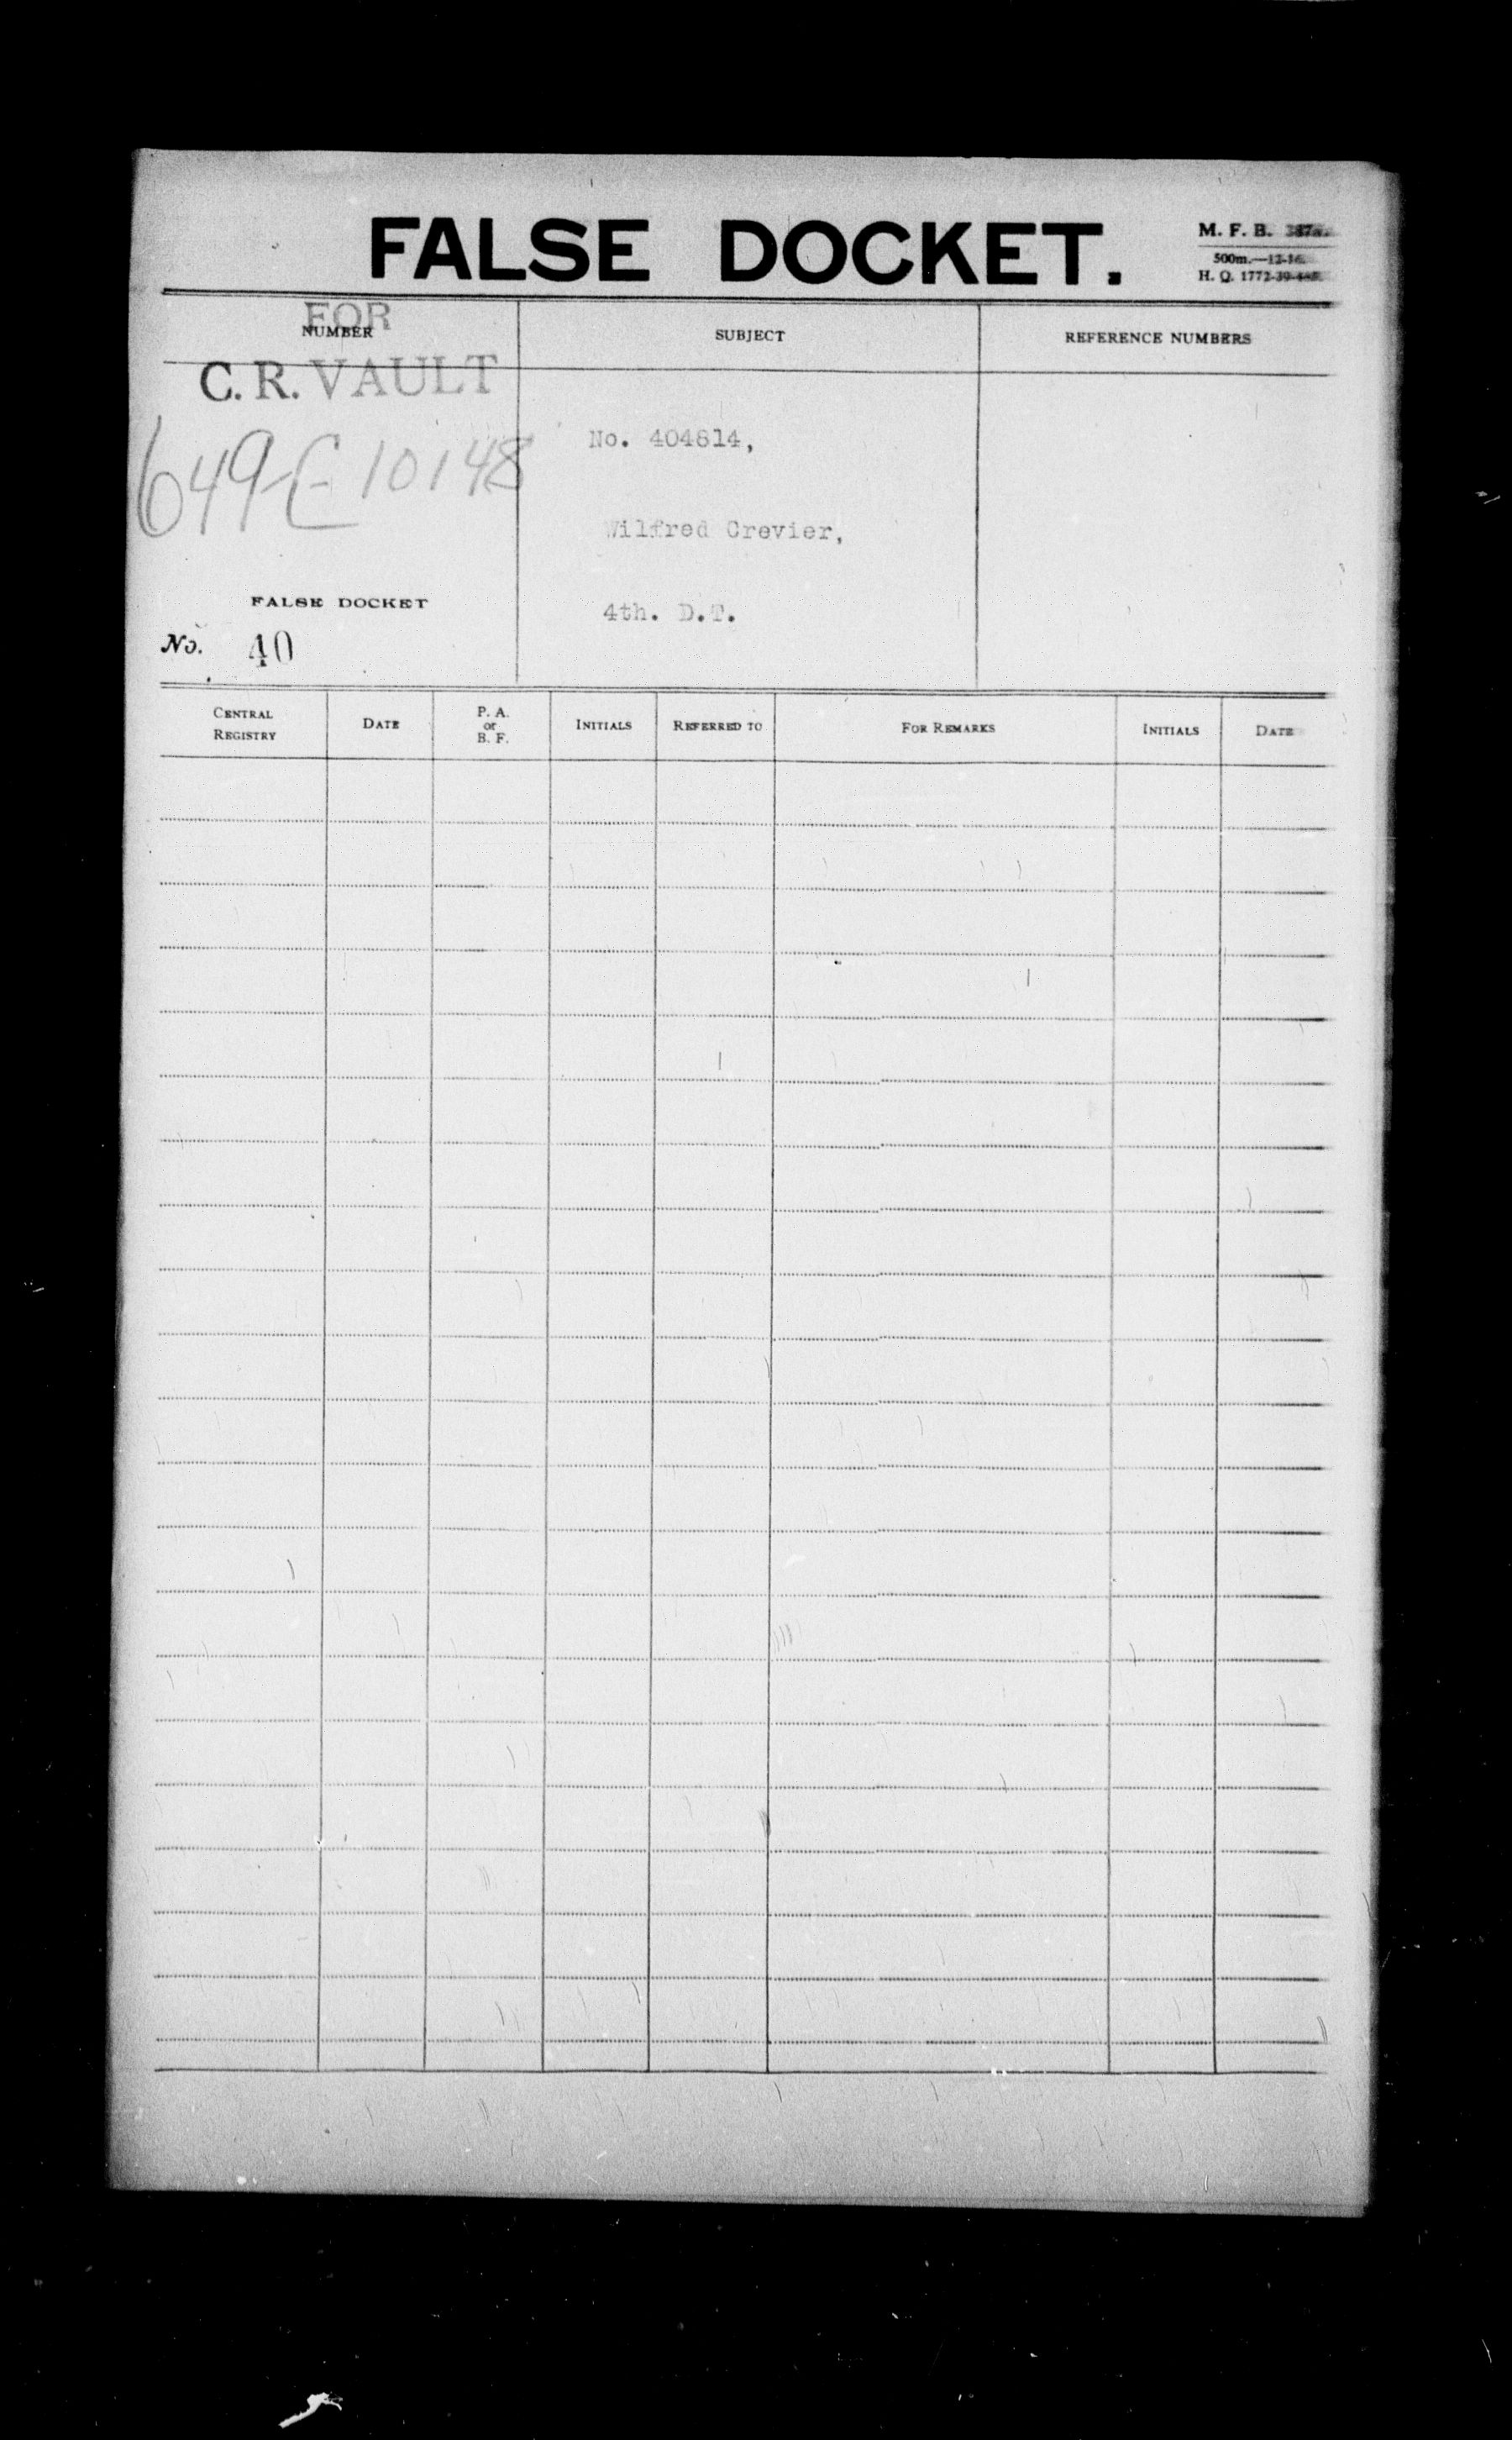 FALSE DOCKET.
M. F. B.
500m.—12-16.
H. Q. 1772-39-
FOR
NUMBER
SUBJECT
REFERENCE NUMBERS
C. R. VAULT
649-C-10148
No. 404814,
Wilfred Crevier,
4th. D.T.
FALSE DOCKET
No. 40
CENTRAL REGISTRY
DATE
P. A. or B. F.
INITIALS
REFERRED TO
FOR REMARKS
INITIALS
DATE